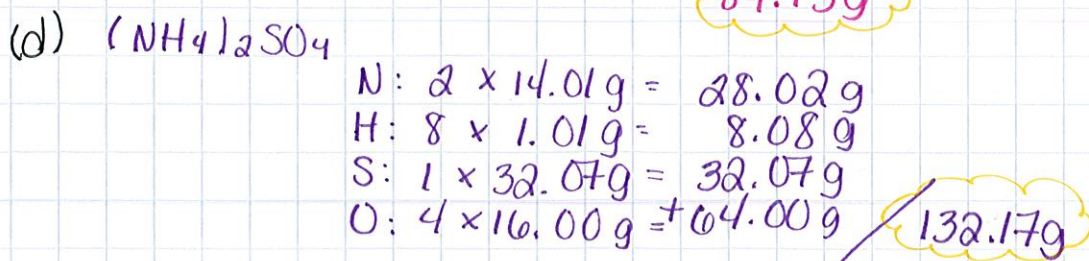 (d) (NH4)2SO4
N: 2 x 14.01 g = 28.02 g
H: 8 x 1.01 g = 8.08 g
S: 1 x 32.07g = 32.07 g
O: 4 x 16.00 g = +64.00 g
132.17g